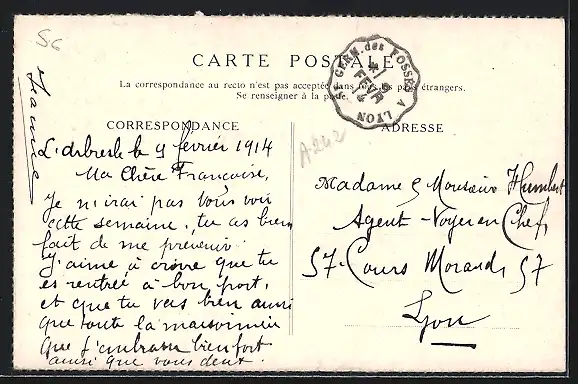 56
CARTE POSTALE
La correspondance au recto n'est pas acceptée dans tous les pays étrangers.
Se renseigner à la poste.
ST GERM. des FOSSÉS A LYON
FEVR
14
A242
CORRESPONDANCE
ADRESSE
L'arbresle le 9 février 1914
Ma Chère Françoise,
Je n'irai pas vous voir
cette semaine, tu as bien
fait de me prévenir.
J'aime à croire que tu
es rentrée à bon port,
et que tu vas bien ainsi
que toute la maisonnée
que j'embrasse bien fort
ainsi que vous deux.
Jeanne
Madame & Monsieur Humbert
Agent-Voyer en Chef,
57. Cours Morand, 57
Lyon